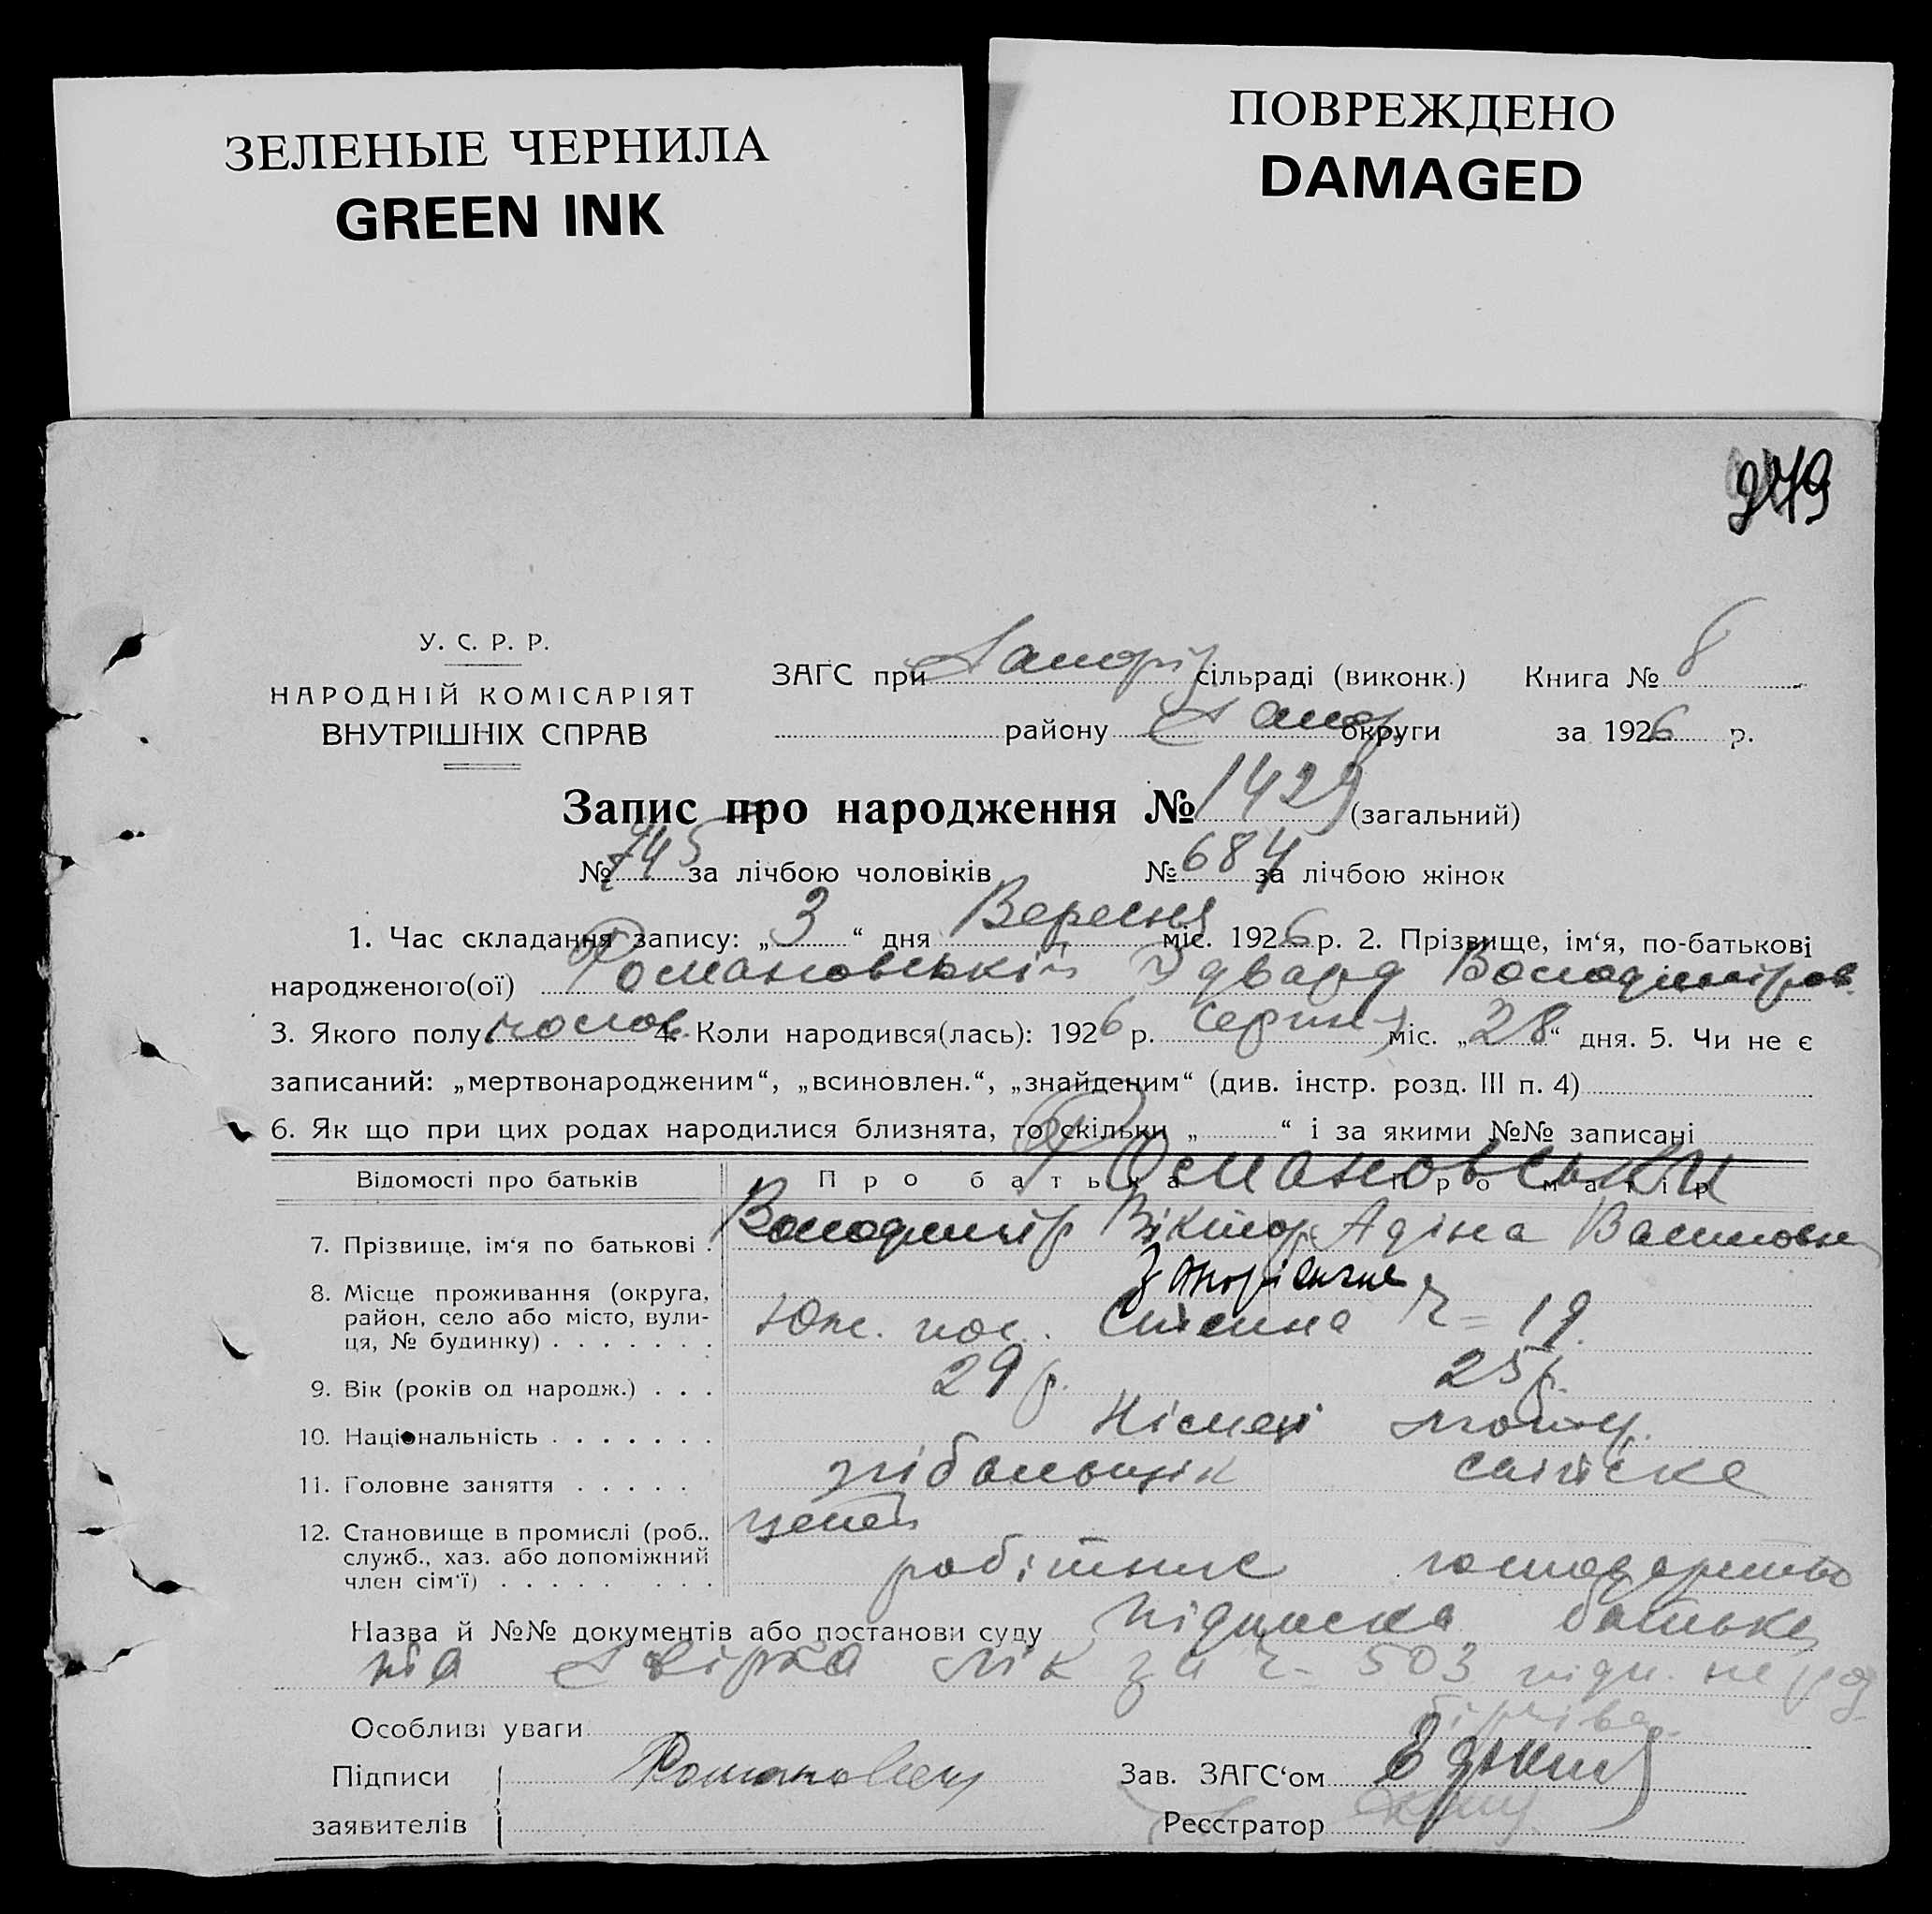 ЗЕЛЕНЫЕ ЧЕРНИЛА
GREEN INK
ПОВРЕЖДЕНО
DAMAGED
У. С. Р. Р.
НАРОДНІЙ КОМІСАРІЯТ
ВНУТРІШНІХ СПРАВ
ЗАГС при Запоріз сільраді (виконк.) Книга № 8
району Запор. округи за 1926 р.
Запис про народження № 1429 (загальний)
№ 745 за лічбою чоловіків № 684 за лічбою жінок
1. Час складання запису: „3“ дня Вересня міс. 1926 р. 2. Прізвище, ім‘я, по-батькові
народженого(ої) Романовський Едвард Володимиров.
3. Якого полу чолов. 4. Коли народився(лась): 1926 р. Серпня міс. „28“ дня. 5. Чи не є
записаний: „мертвонародженим“, „всиновлен.“, „знайденим“ (див. інстр. розд. III п. 4)
6. Як що при цих родах народилися близнята, то скільки „ “ і за якими №№ записані
Відомості про батьків Про батька Про матір
Романовськи
7. Прізвище, ім‘я по батькові . Володимир Віктор. Адіна
8. Місце проживання (округа,
район, село або місто, вули-
ця, № будинку) . . . . . . . Юж. пос. 19.
9. Вік (років од народж.) . . . 29 р. 25 р.
10. Національність . . . . . . . Німець
11. Головне заняття . . . . .
12. Становище в промислі (роб.,
служб., хаз. або допоміжний
член сім‘ї) . . . . . . . . . робітник господарство
Назва й №№ документів або постанови суду Підписка батька
за 503
Особливі уваги
Підписи Зав. ЗАГС‘ом
заявителів Реєстратор